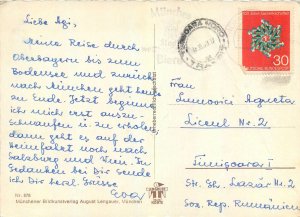 Liebe Agi,
Meine Reise durch
Oberbayern bis zum
Bodensee und zurück
nach München geht heute
zu Ende. Jetzt beginne
ich mich erst auszu-
schnaufen und zu erholen,
dann geht es auf der
Heimfahrt noch nach
Salzburg und Wien. In
Gedanken bei Dir sende
ich Dir herzl. Grüsse
Nr. 876
Münchener Bildkunstverlag August Lengauer, München
München
Bier
30
DEUTSCHE BUNDESPOST
Frau
Agneta
Liceul Nr. 2
Timișoara I
Str. Gh. Lazăr Nr. 2
Soz. Rep. Rumänien